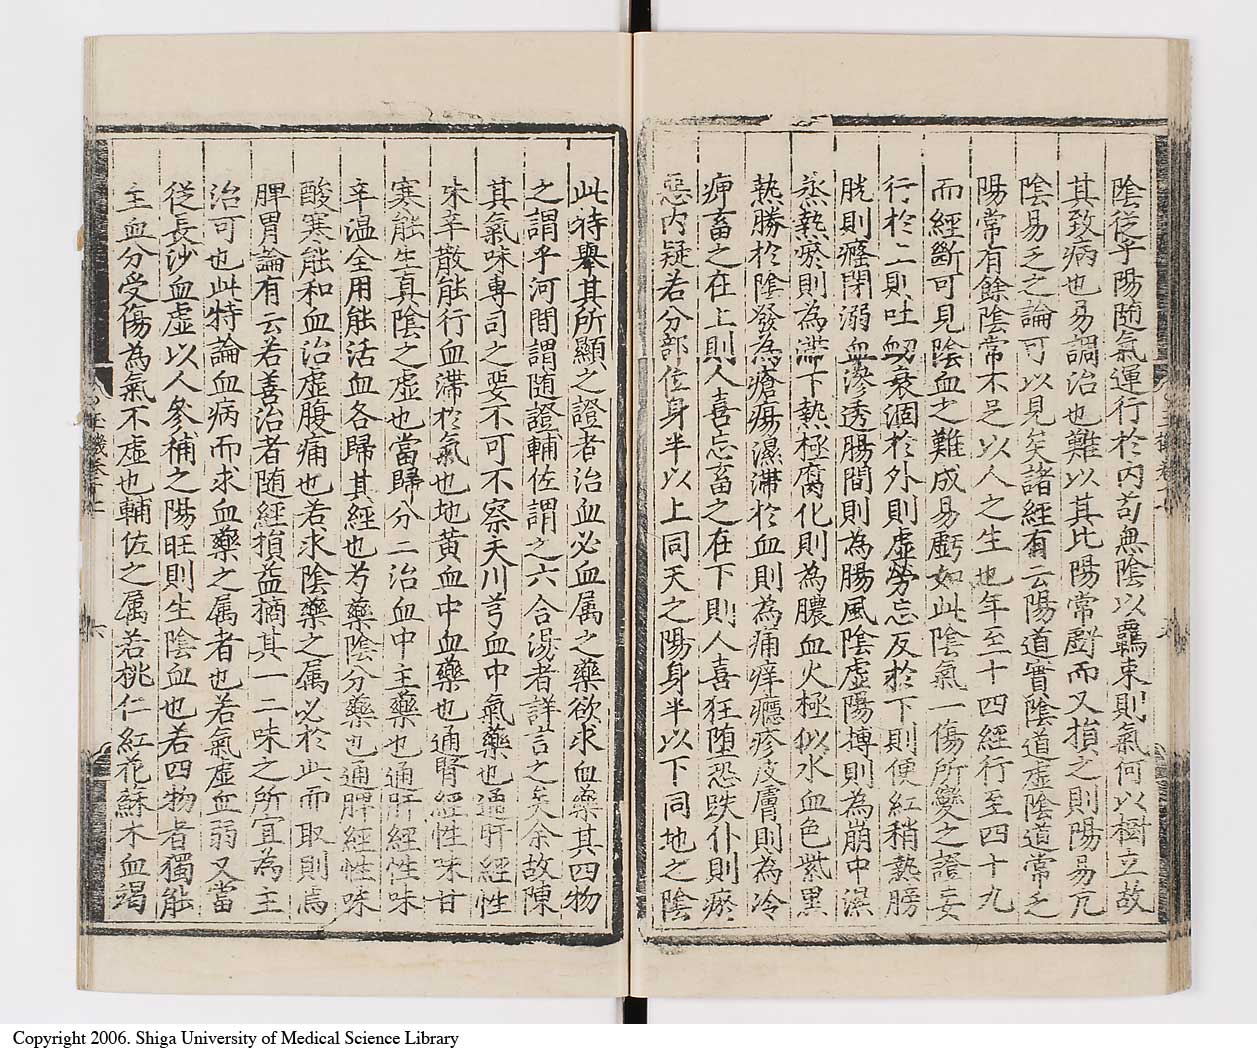 陰從乎陽隨氣運行於內苟無陰以羈束則氣何以樹立故
其致病也易調治也難以其比陽常虧而又損之則陽易亢
陰易乏之論可以見矣諸經有云陽道實陰道虛陰道常乏
陽常有餘陰常不足以人之生也年至十四經行至四十九
而經斷可見陰血之難成易虧如此陰氣一傷所變之證妄
行於上則吐衂衰涸於外則虛勞忘反於下則便紅稍熱膀
胱則癃閉溺血滲透腸間則為腸風陰虛陽搏則為崩中濕
蒸熱瘀則為滯下熱極腐化則為膿血火極似水血色紫黑
熱勝於陰發為瘡瘍濕滯於血則為痛痒癮疹皮膚則為冷
痺畜之在上則人喜忘畜之在下則人喜狂堕恐跌仆則瘀
惡內疑若分部位身半以上同天之陽身半以下同地之陰
此特舉其所顯之證者治血必血属之藥欲求血藥其四物
之謂乎河間謂隨證輔佐謂之六合湯者詳言之矣余故陳
其氣味專司之要不可不察夫川芎血中氣藥也通肝經性
味辛散能行血滯於氣也地黃血中血藥也通腎經性味甘
寒能生真陰之虛也當歸分二治血中主藥也通肝經性味
辛溫全用能活血各歸其經也芍藥陰分藥也通脾經性味
酸寒能和血治虛腹痛也若求陰藥之属必於此而取則焉
脾胃論有云若善治者隨經損益摘其一二味之所宜為主
治可也此特論血病而求血藥之属者也若氣虛血弱又當
從長沙血虛以人參補之陽旺則生陰血也若四物者獨能
主血分受傷為氣不虛也輔佐之属若桃仁紅花蘇木血竭